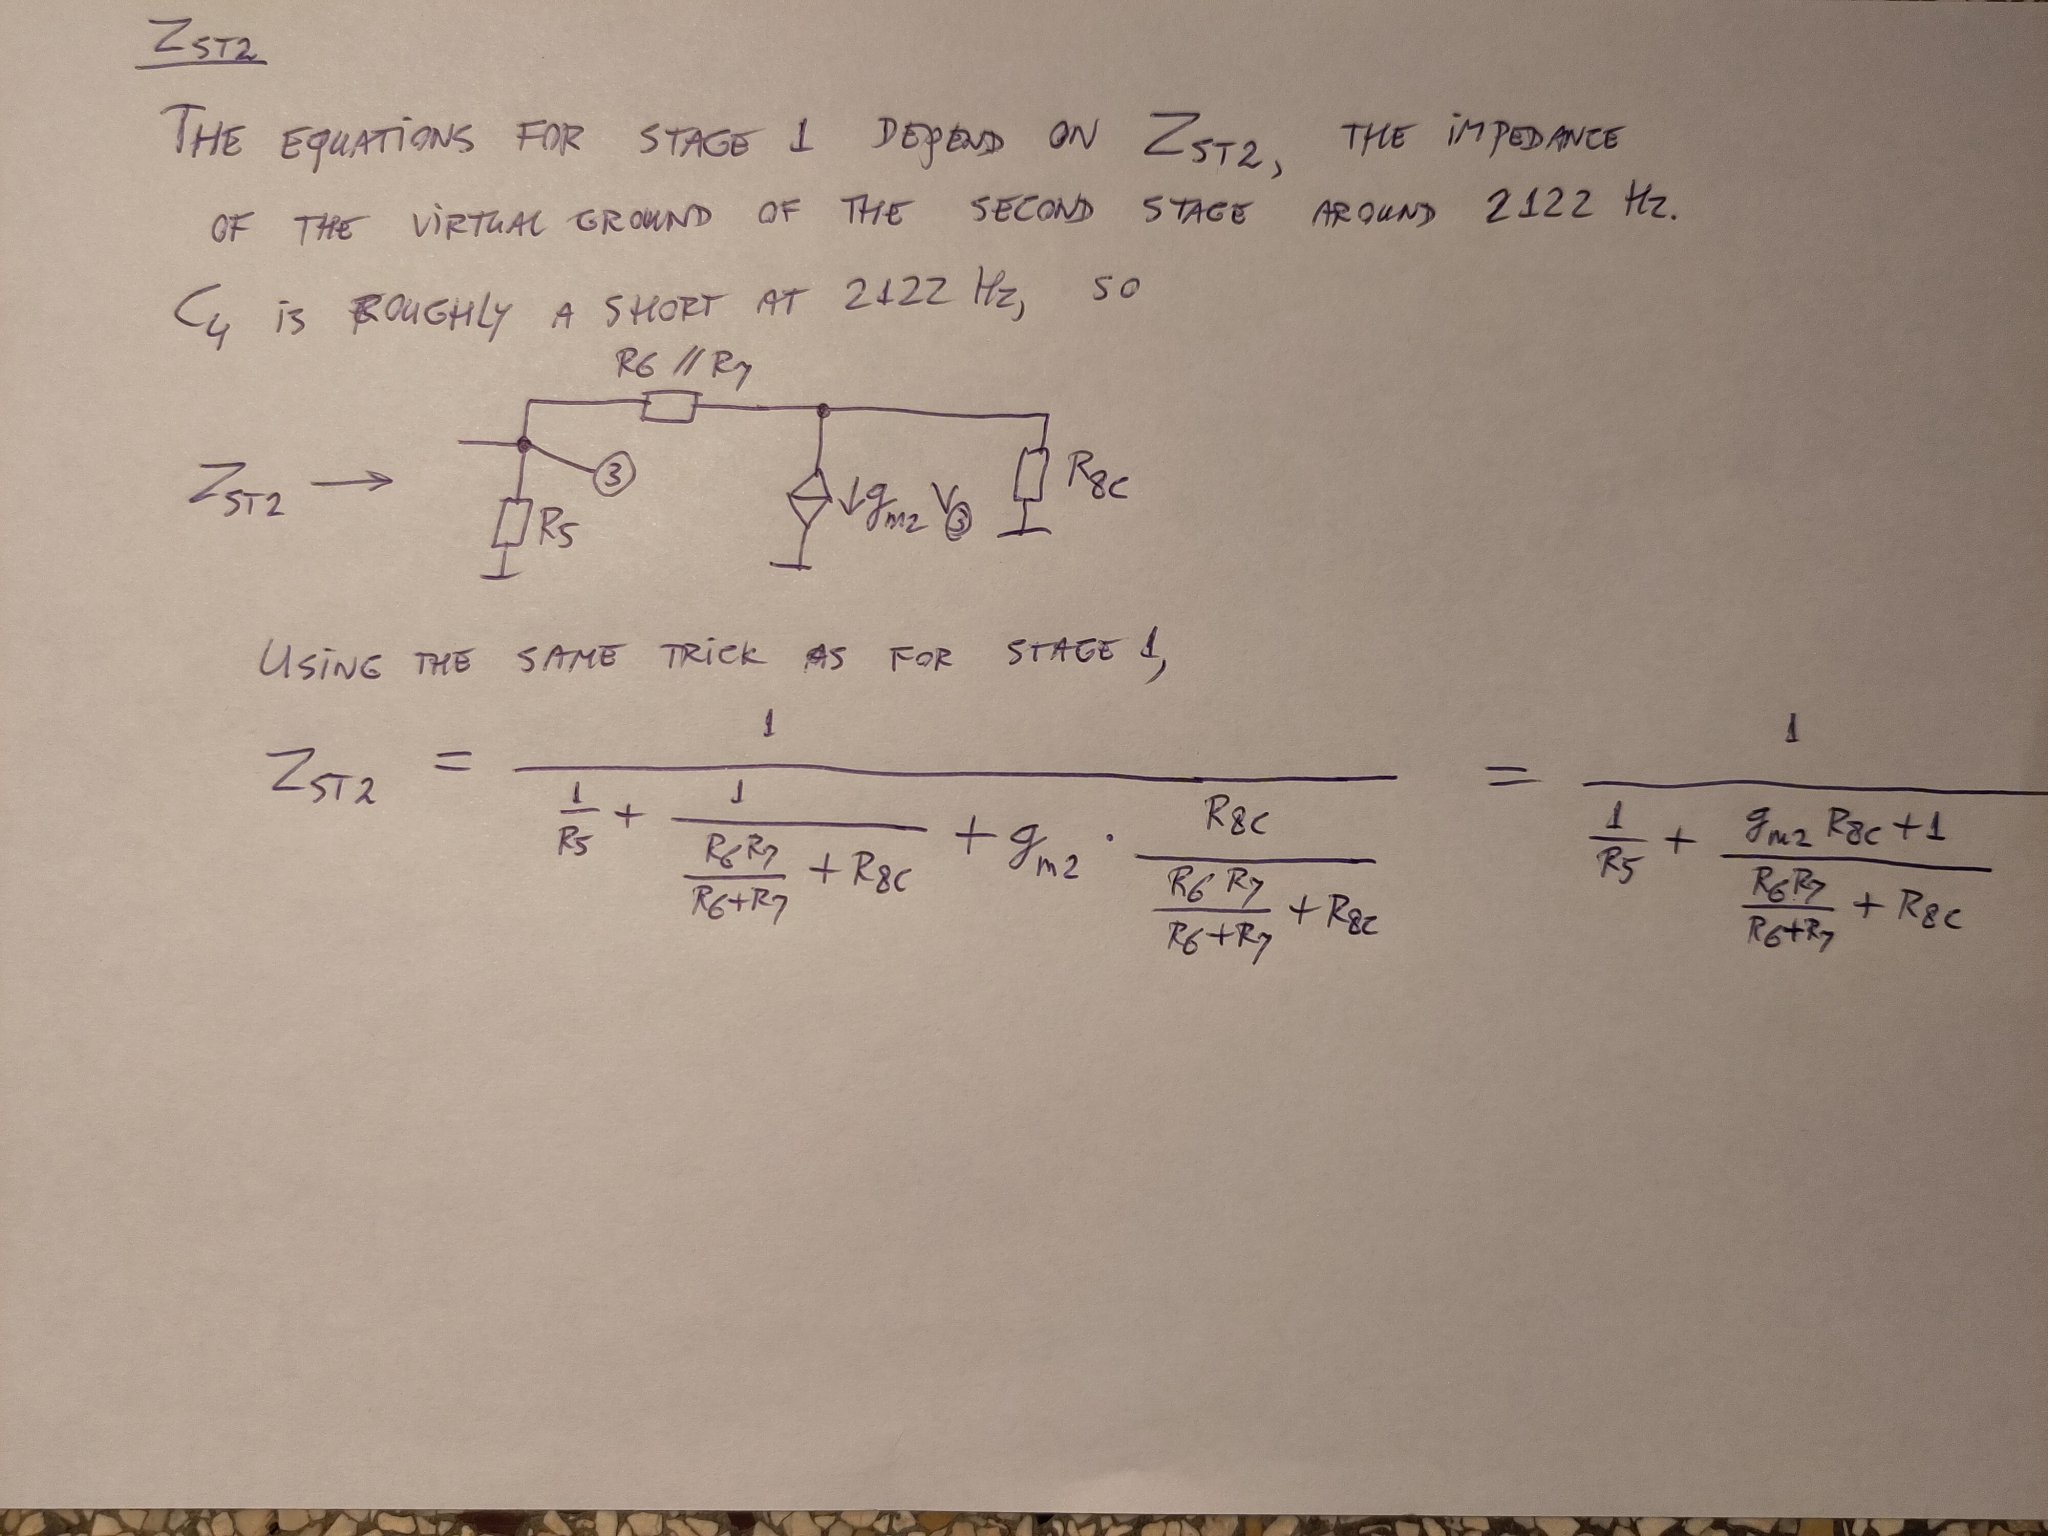 Z_ST2
THE EQUATIONS FOR STAGE 1 DEPEND ON Z_ST2, THE IMPEDANCE
OF THE VIRTUAL GROUND OF THE SECOND STAGE AROUND 2122 Hz.
C_4 is ROUGHLY A SHORT AT 2122 Hz, SO
R6 // R7
Z_ST2 → ③ R5 ↓ g_m2 V_③ R_8C
USING THE SAME TRICK AS FOR STAGE 1,
Z_ST2 = 1 / (1/R5 + 1/(R6R7/(R6+R7) + R8C) + g_m2 · R8C/(R6R7/(R6+R7) + R8C)) = 1 / (1/R5 + (g_m2 R8C + 1)/(R6R7/(R6+R7) + R8C))